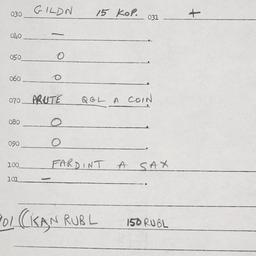 030 GILDN 15 KOP. 031 +
040 —
050 0
060 0
070 ARUTE QGL A COIN
080 0
090 0
100 FARDINT A SAX
101 —
901 ((KAN RUBL 150 RUBL